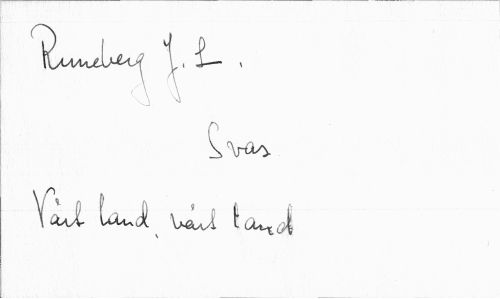 Runeberg J. L.
Svas
Vårt land, vårt land